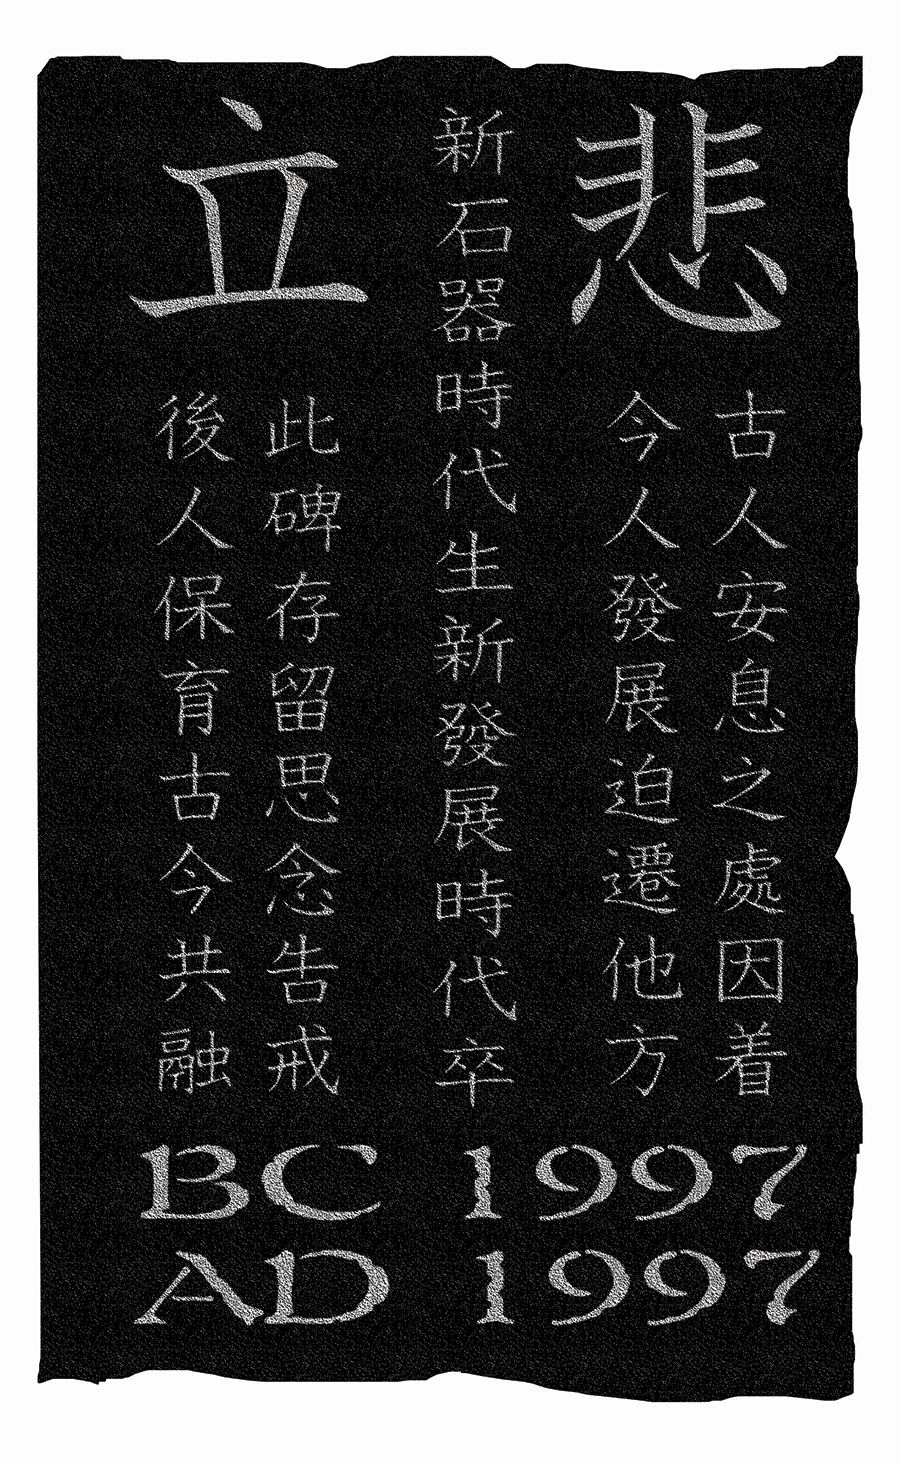 悲立
古人安息之處因着
今人發展迫遷他方
新石器時代生新發展時代卒
此碑存留思念告戒
後人保育古今共融
BC 1997
AD 1997